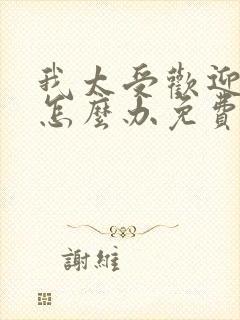 我太受歡迎
怎麼办免費
謝維